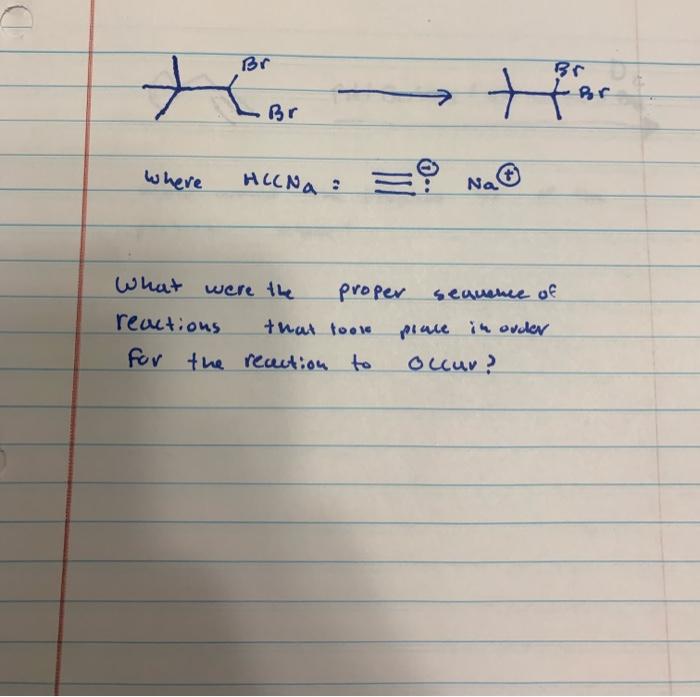 Br Br
Br Br
where HCCNa : Na
What were the proper sequence of
reactions that took place in order
for the reaction to occur?